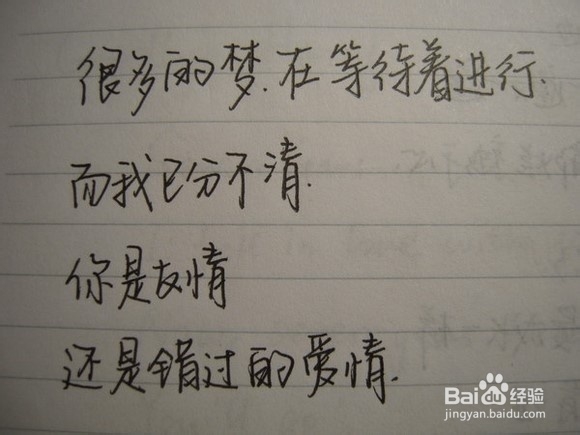 很多的梦.在等待着进行.
而我已分不清.
你是友情
还是错过的爱情.
Bai du 经验
jingyan.baidu.com